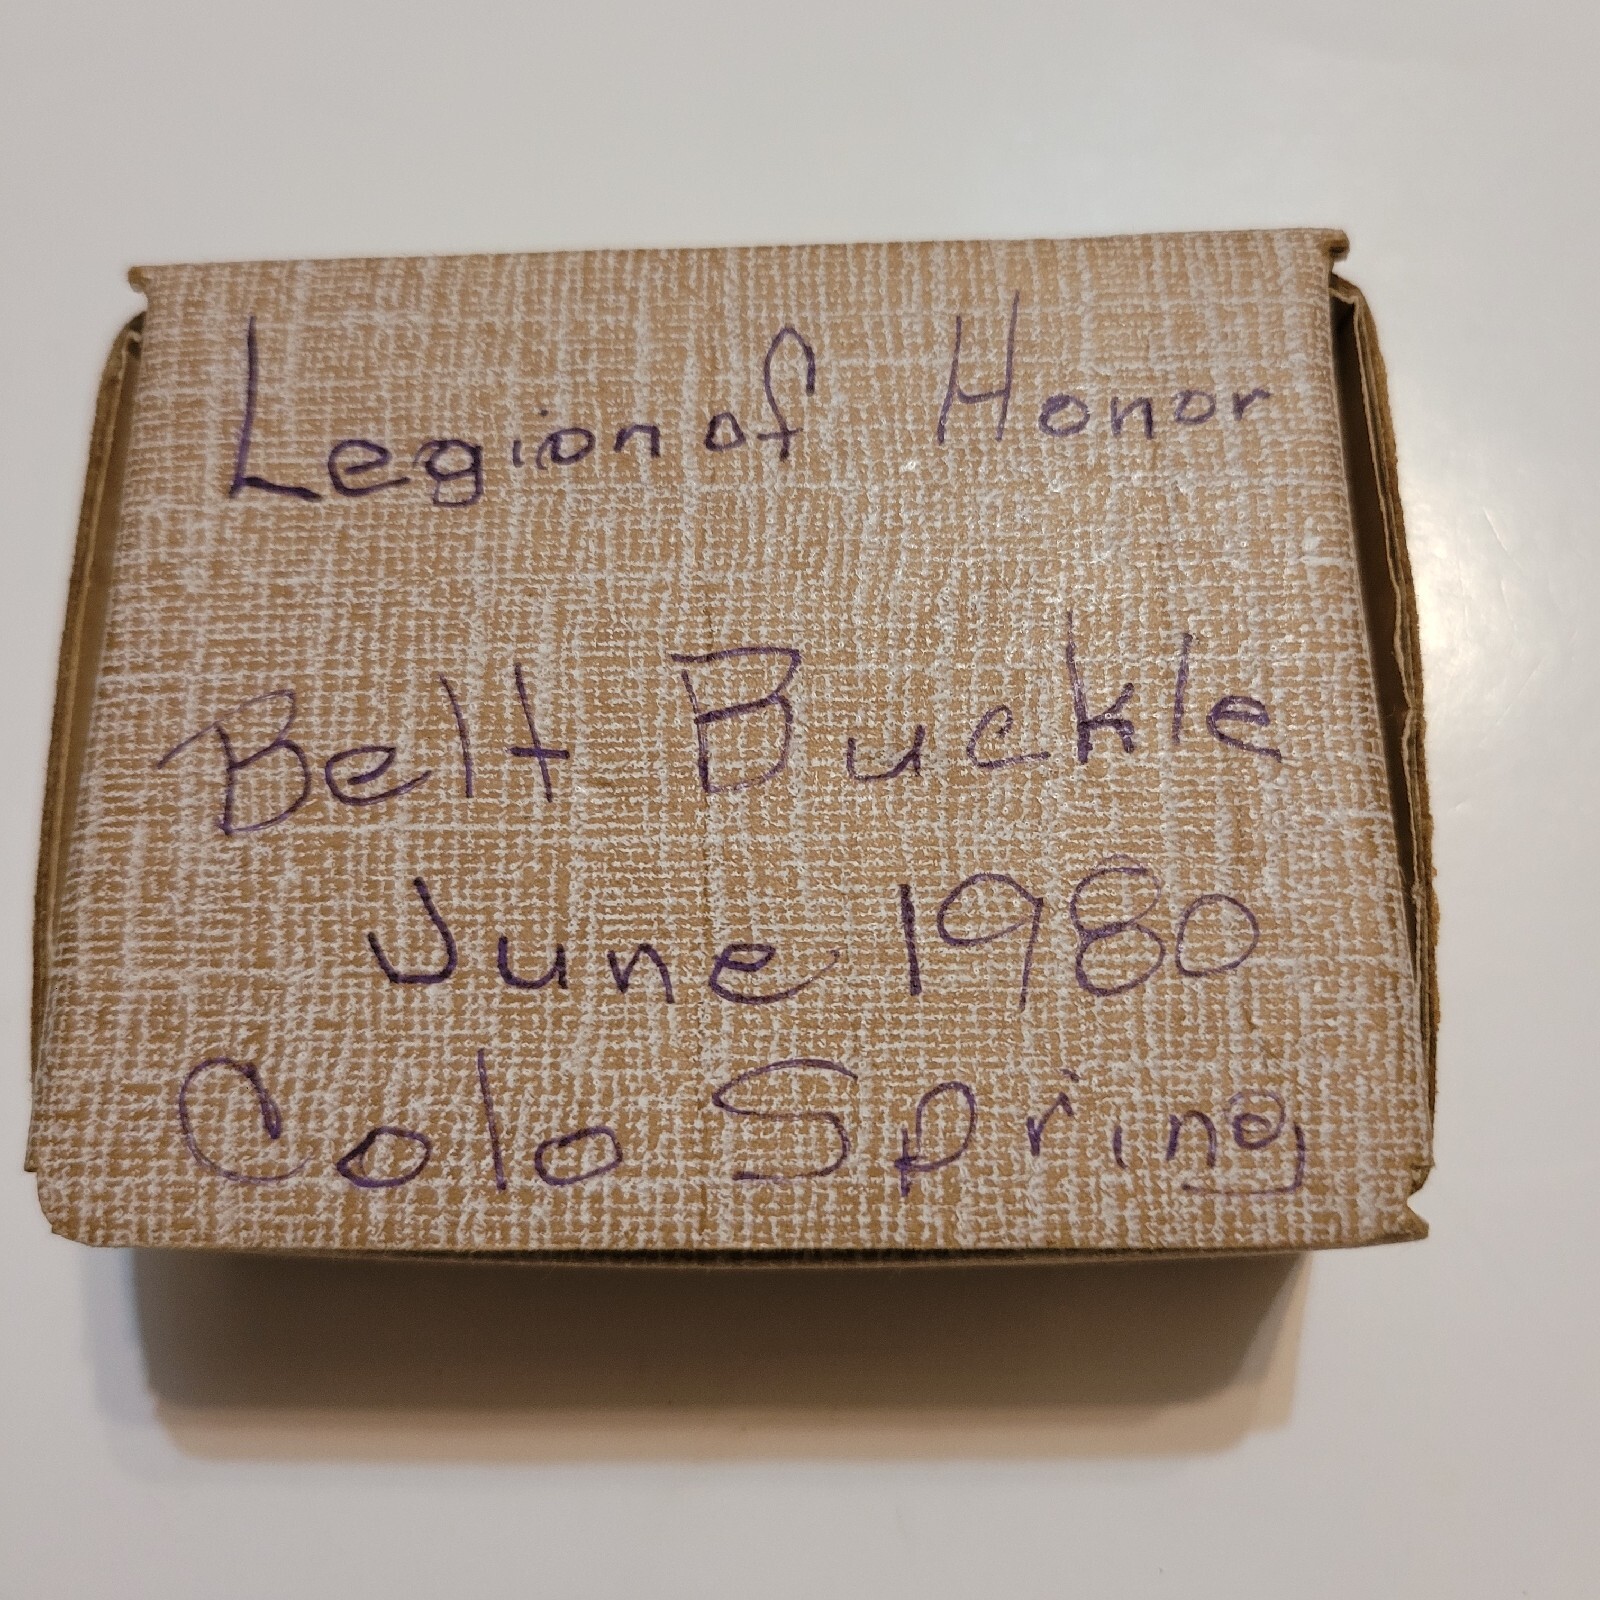 Legion of Honor
Belt Buckle
June 1980
Colo Spring